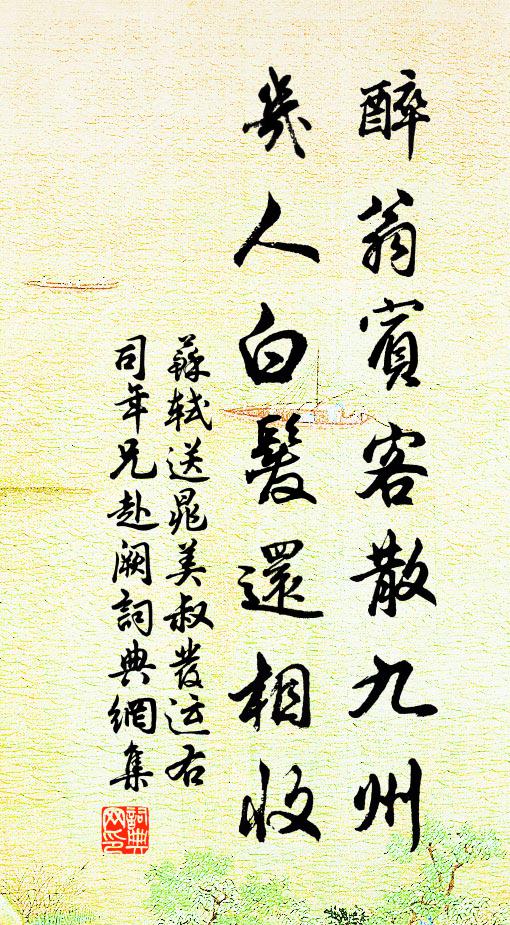 醉翁賓客散九州
幾人白髮還相收
蘇軾送晁美叔發運右
司年兄赴闕詞典網集
詞典
网印